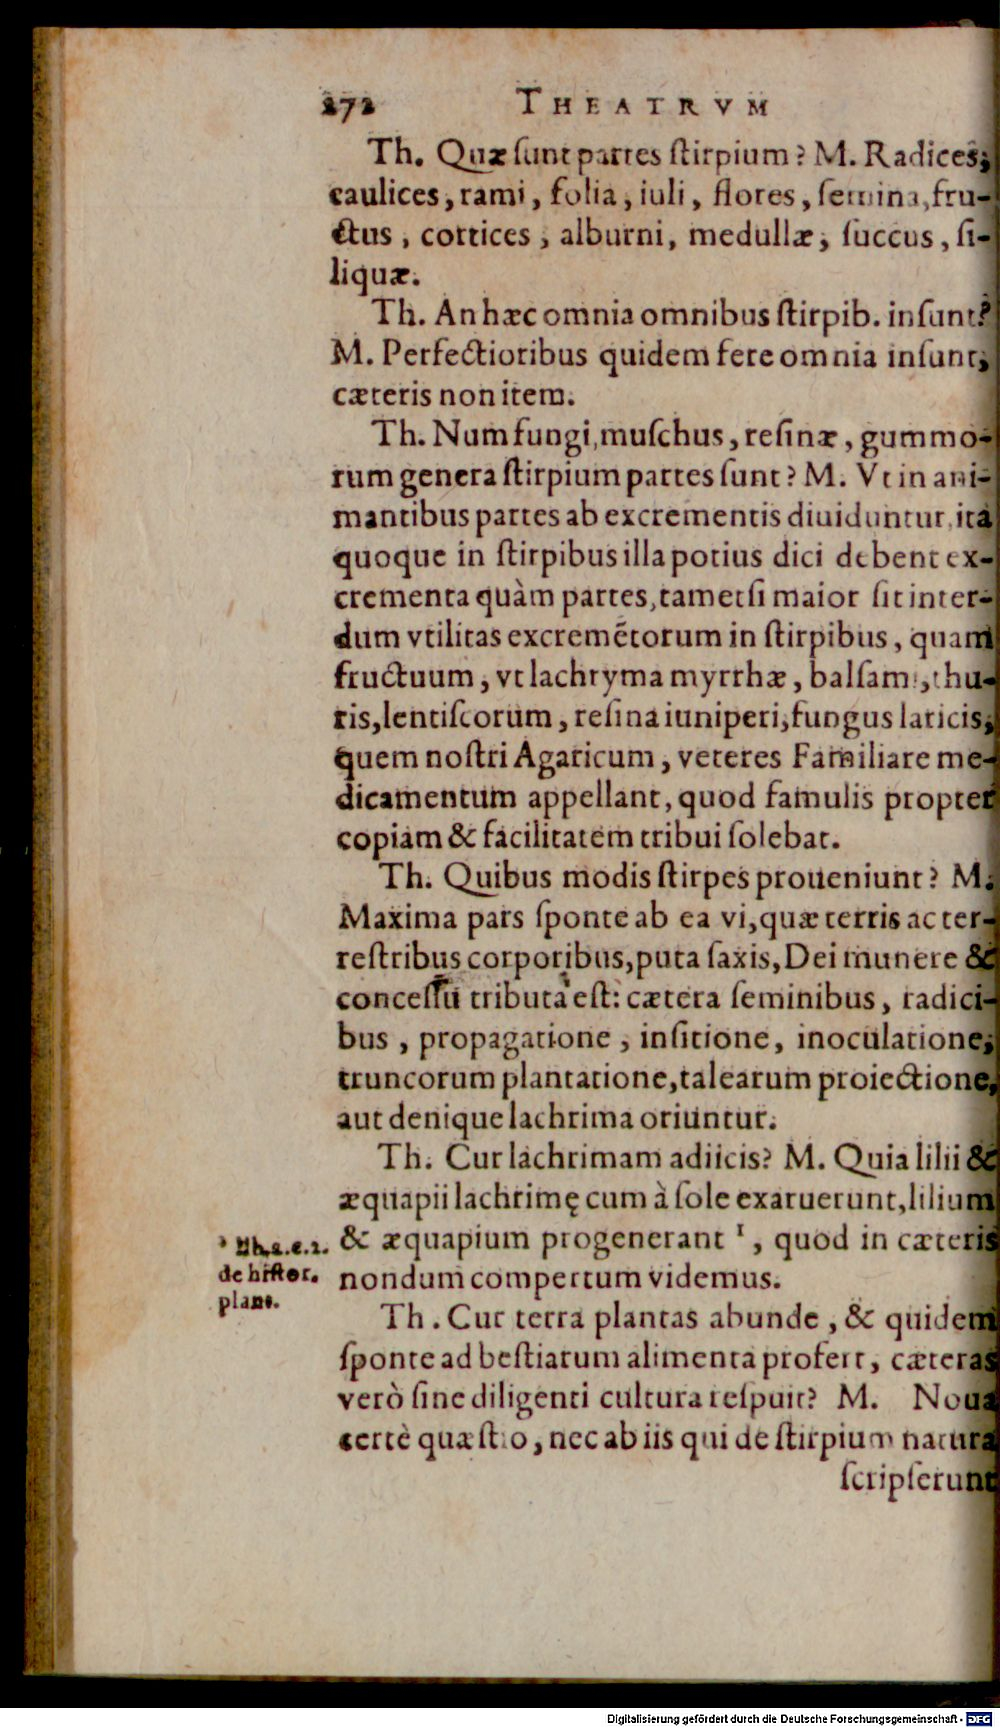 272 THEATRVM
Th. Quæ ſunt partes ſtirpium? M. Radices,
caulices, rami, folia, iuli, flores, ſemina, fru-
ctus, cortices, alburni, medullæ, ſuccus, ſi-
liquæ.
Th. An hæc omnia omnibus ſtirpib. inſunt?
M. Perfectioribus quidem fere omnia inſunt,
cæteris non item.
Th. Num fungi, muſchus, reſinæ, gummo-
rum genera ſtirpium partes ſunt? M. Vt in ani-
mantibus partes ab excrementis diuiduntur, ita
quoque in ſtirpibus illa potius dici debent ex-
crementa quàm partes, tametſi maior ſit inter-
dum vtilitas excremẽtorum in ſtirpibus, quam
fructuum, vt lachryma myrrhæ, balſami, thu-
ris, lentiſcorum, reſina iuniperi, fungus laricis,
quem noſtri Agaricum, veteres Familiare me-
dicamentum appellant, quod famulis propter
copiam & facilitatem tribui ſolebat.
Th. Quibus modis ſtirpes proueniunt? M.
Maxima pars ſponte ab ea vi, quæ terris ac ter-
reſtribus corporibus, puta ſaxis, Dei munere &
conceſſu tributa eſt: cætera ſeminibus, radici-
bus, propagatione, inſitione, inoculatione,
truncorum plantatione, talearum proiectione,
aut denique lachrima oriuntur.
Th. Cur lachrimam adiicis? M. Quia lilii &
æquapii lachrimę cum à ſole exaruerunt, lilium
& æquapium progenerant ¹, quod in cæteris
nondum compertum videmus.
¹ lib. 2. c. 2.
de hiſtor.
plant.
Th. Cur terra plantas abunde, & quidem
ſponte ad beſtiarum alimenta profert, cæteras
verò ſine diligenti cultura reſpuit? M. Noua
certè quæſtio, nec ab iis qui de ſtirpium natura
ſcripſerunt
Digitalisierung gefördert durch die Deutsche Forschungsgemeinschaft - DFG